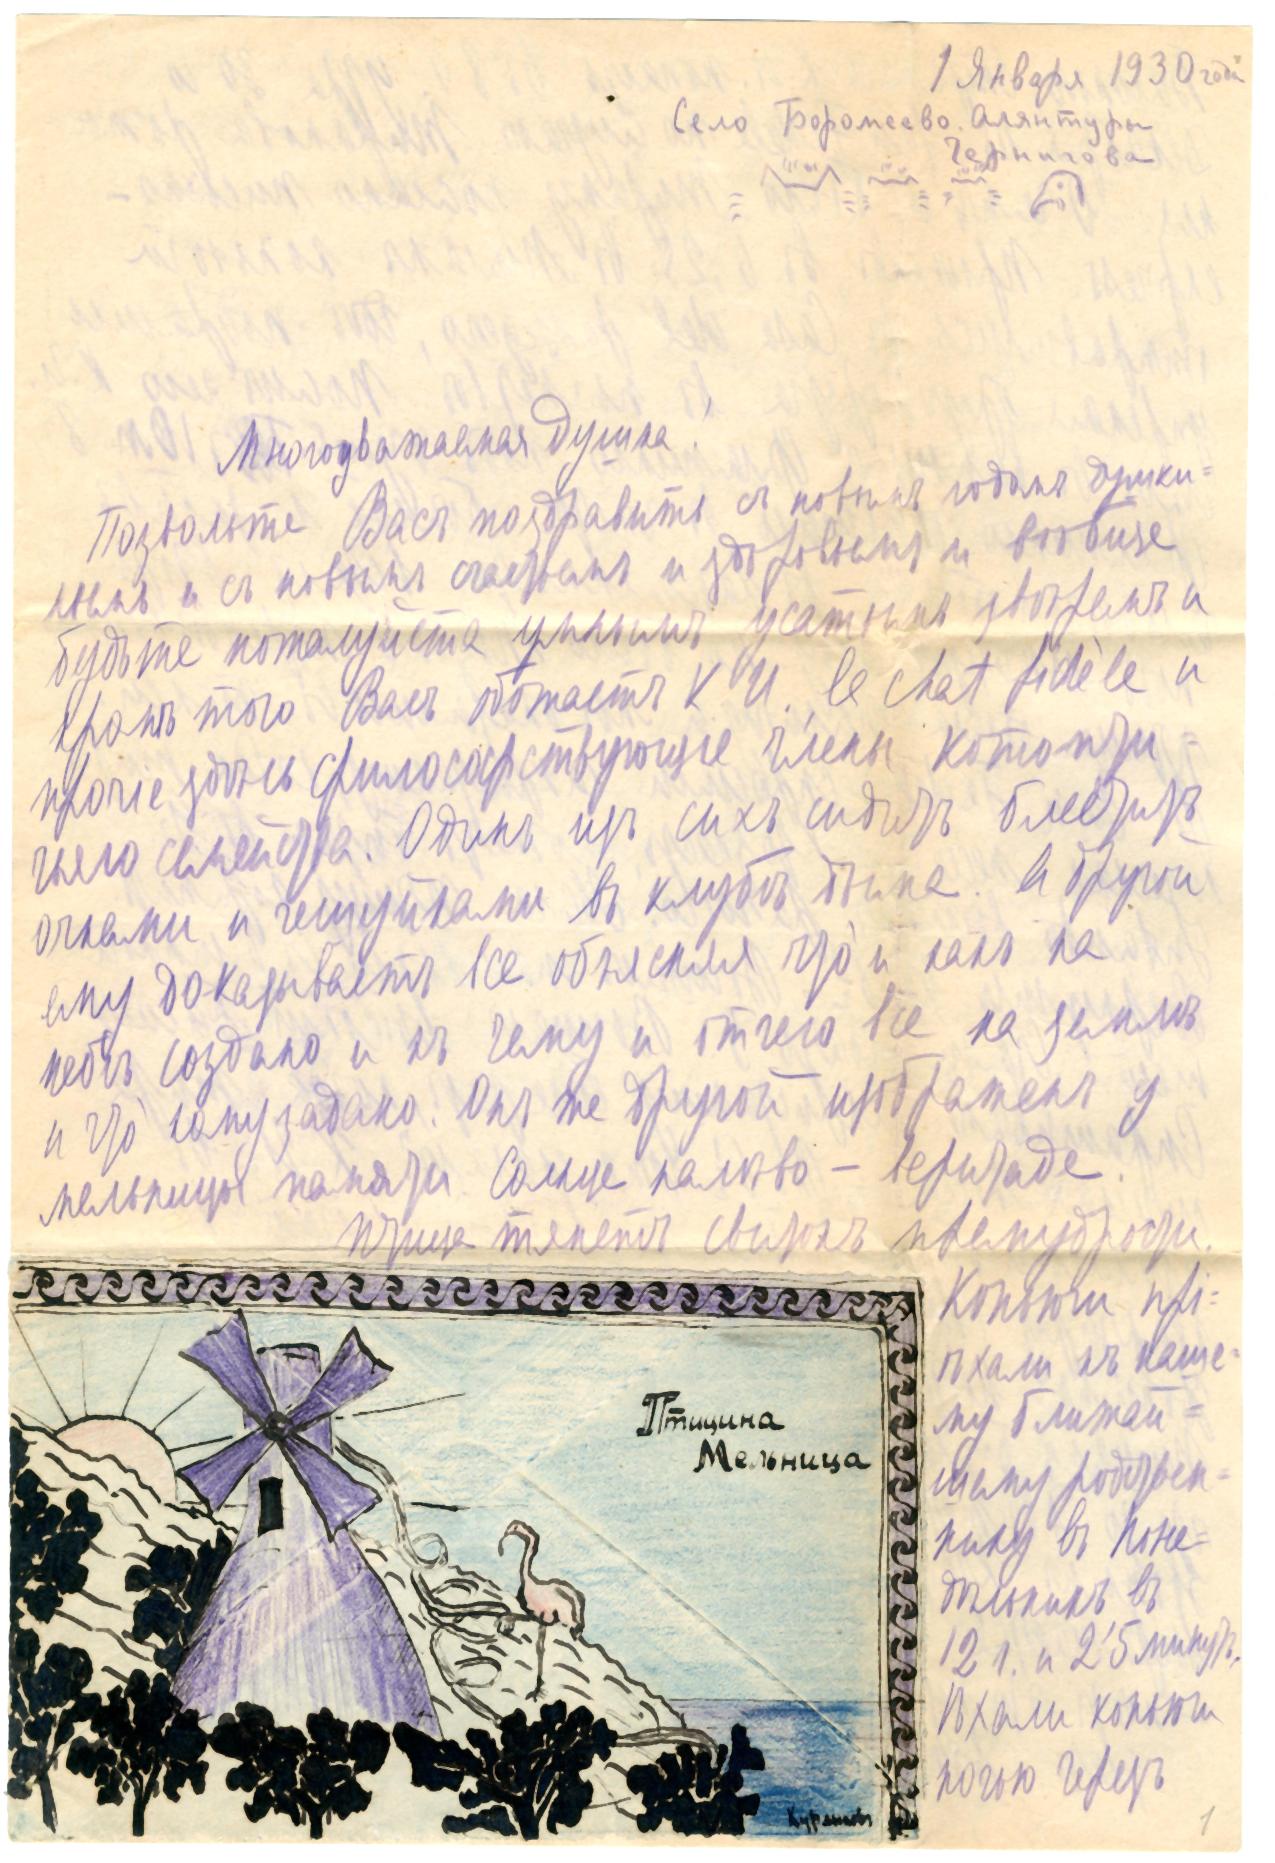 1 Января 1930 года
Село Боромеево. Алянтуры
Чернигова
Многоуважаемая Душка!
Позвольте Васъ поздравить съ новымъ годомъ душки=
нымъ и съ новымъ счастьемъ и здоровьемъ и вообще
будьте пожалуйста умнымъ усатымъ звѣремъ и
кромѣ того Васъ обожаетъ К. И. le chat fidèle и
прочіе здѣсь философствующіе члены
чьего семейства. Одинъ изъ сихъ сидитъ блеститъ
очками и чешуйками въ клубѣ дыма. А другой
ему доказываетъ все объясняя что и какъ на
небѣ создано и къ чему и отчего все на землѣ
и что кому задано. Онъ же другой изображенъ у
мельницы памяти. Солнце налѣво –
птице тянетъ свитокъ премудрости.
Коньюги прі=
ѣхали къ наше=
му ближай=
шему родствен=
нику въ поне=
дѣльникъ въ
12 ч. и 25 минутъ.
Ѣхали коньюги
ночью черезъ
Птицина
Мельница
1